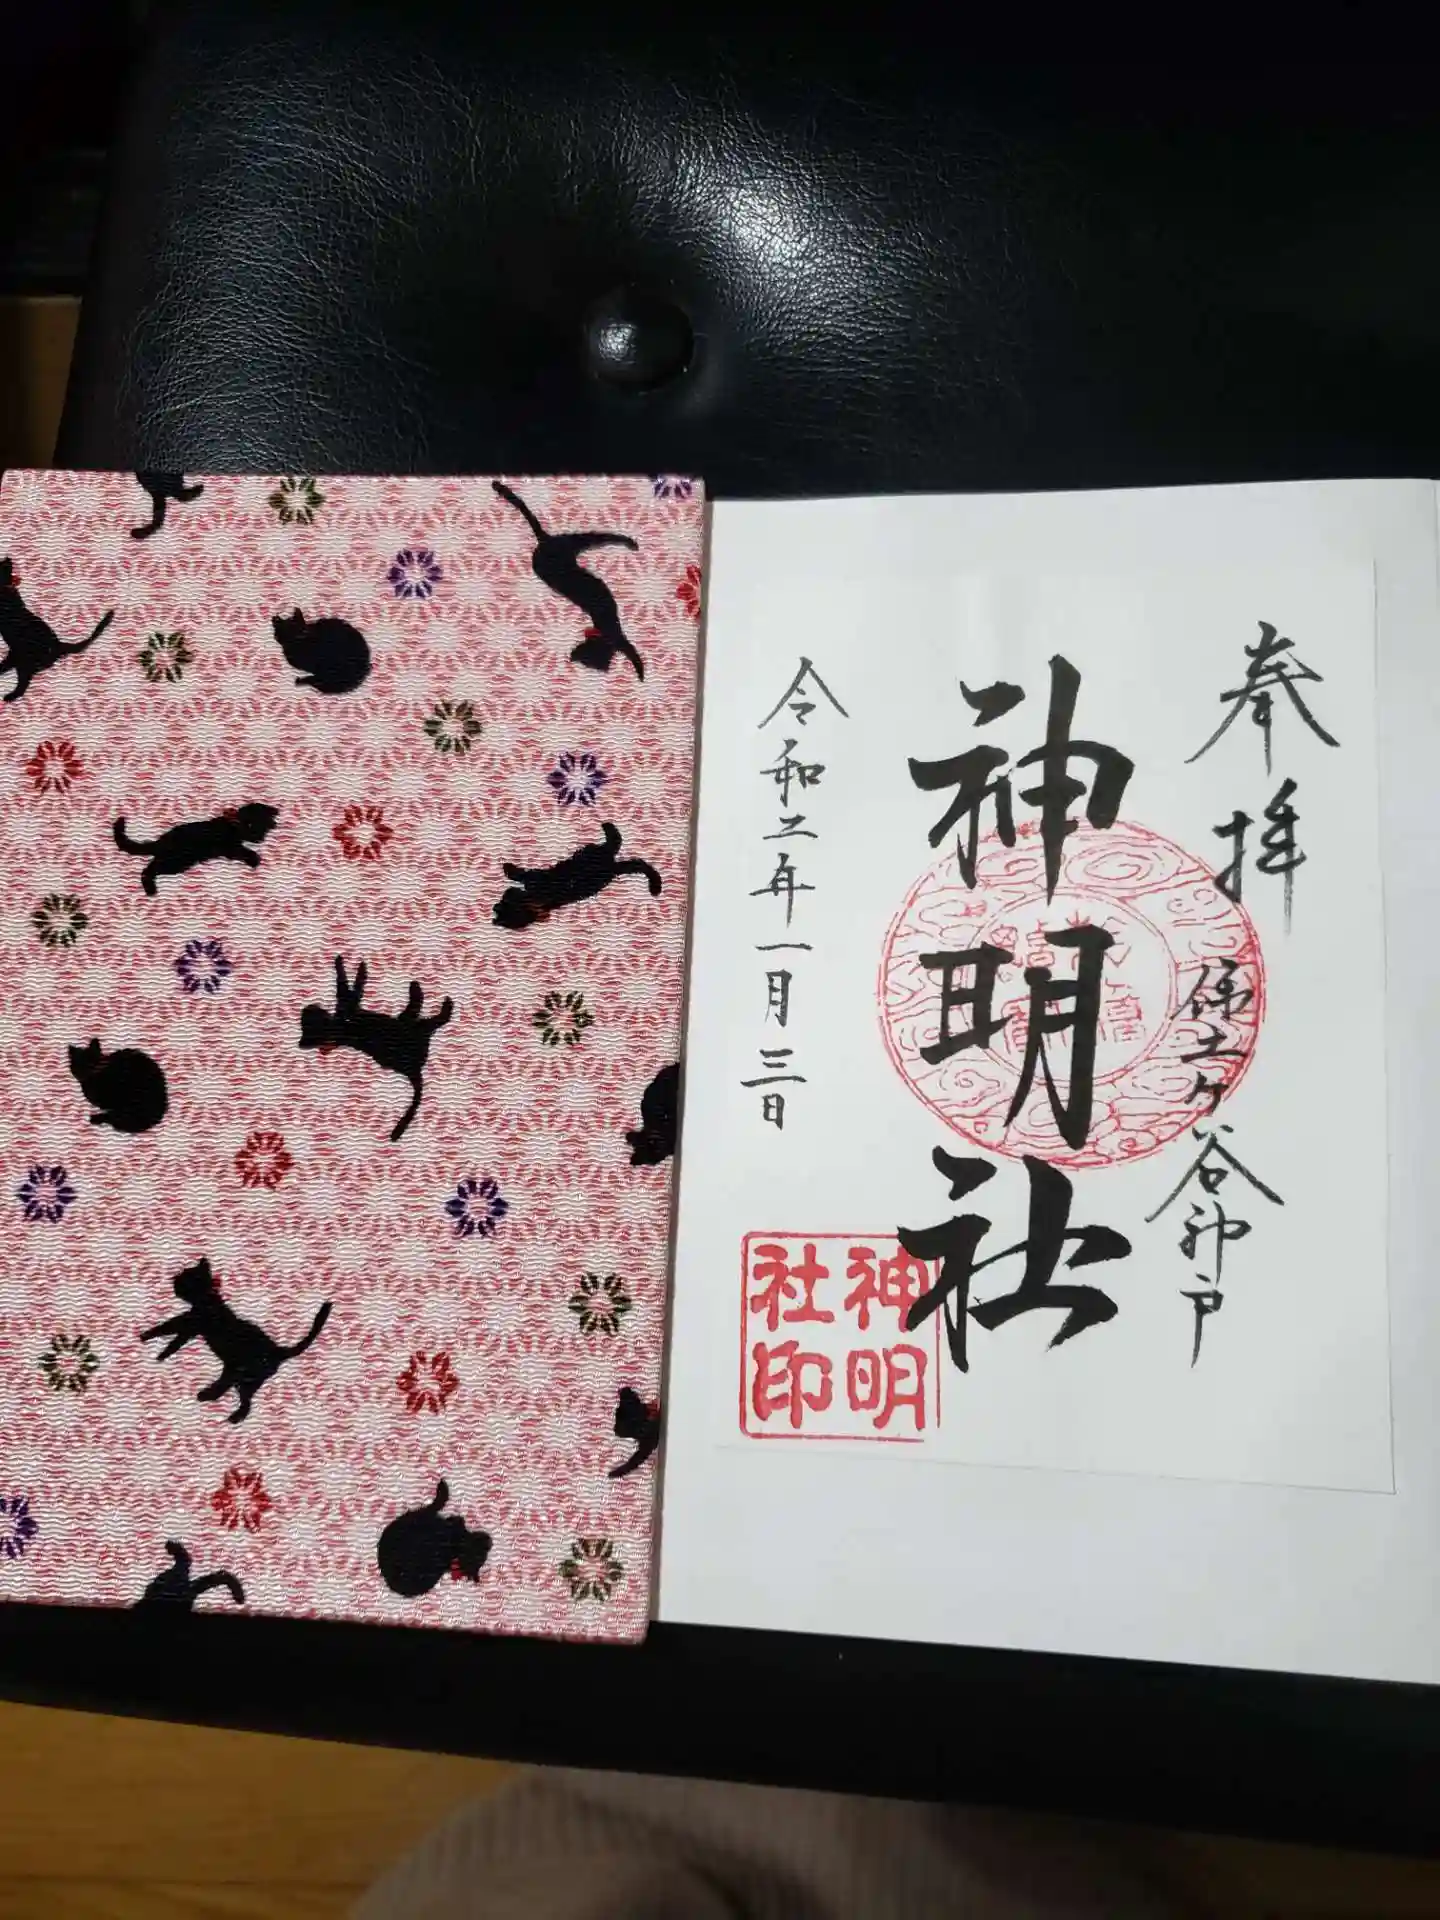 奉拝
保土ヶ谷神戸
神明社
令和二年一月三日
神明
社印